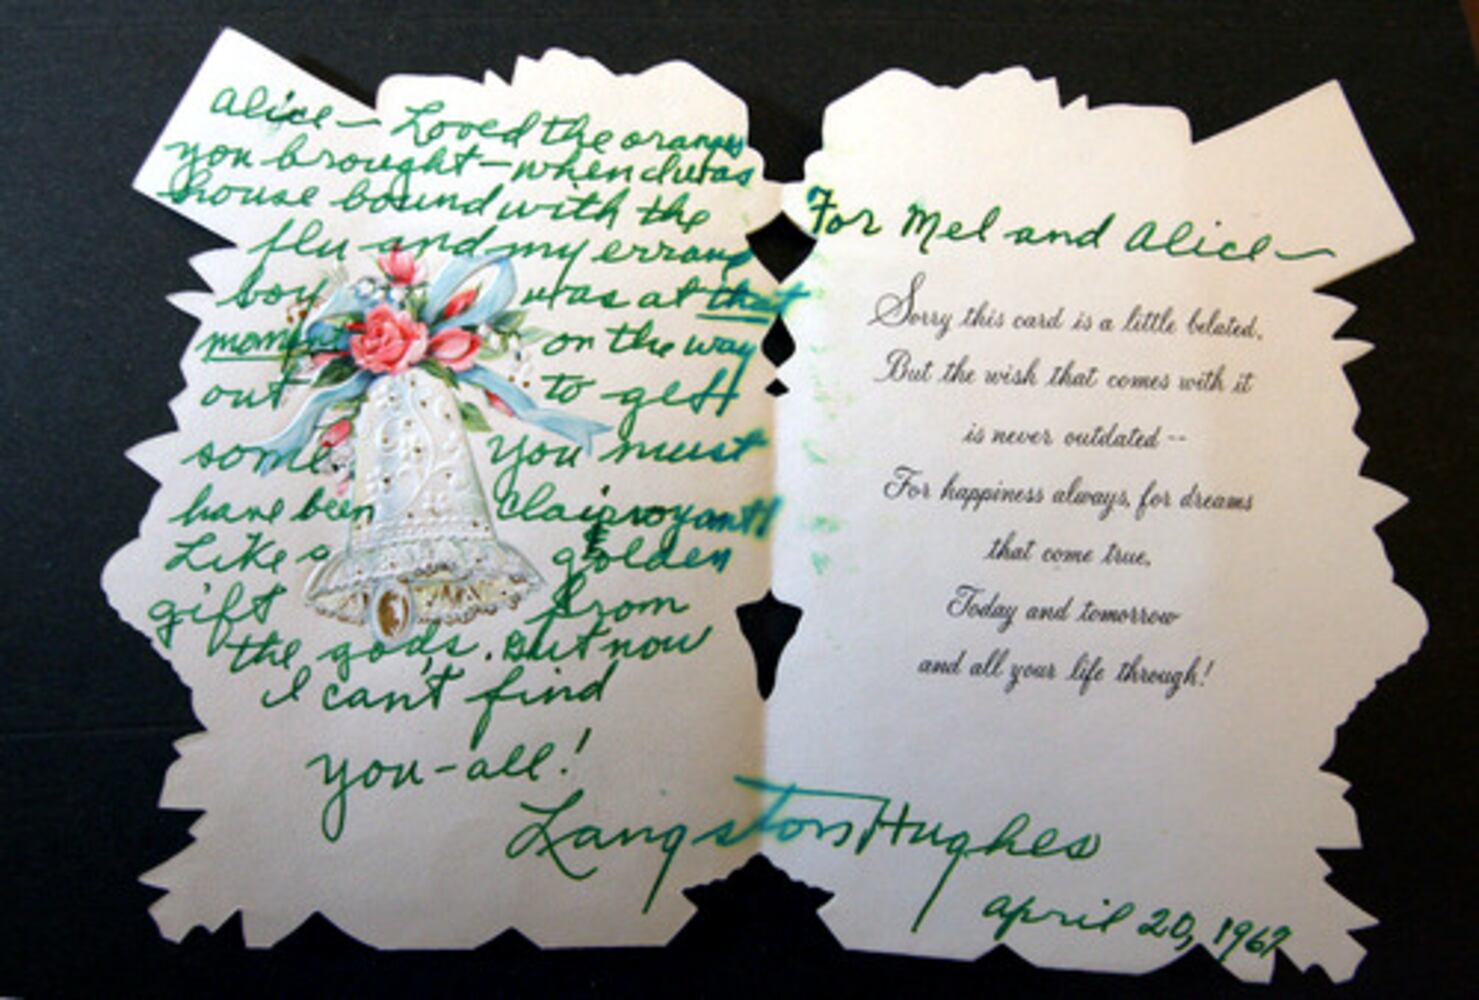 Alice — Loved the oranges
you brought — when I was
house bound with the
flu and my errand
boy was at that
moment on the way
out to gett
some! You must
have been Clairvoyant!!
Like a golden
gift from
the gods. But now
I can't find
you-all!
For Mel and Alice —
Sorry this card is a little belated,
But the wish that comes with it
is never outdated --
For happiness always, for dreams
that come true,
Today and tomorrow
and all your life through!
Langston Hughes
April 20, 1967